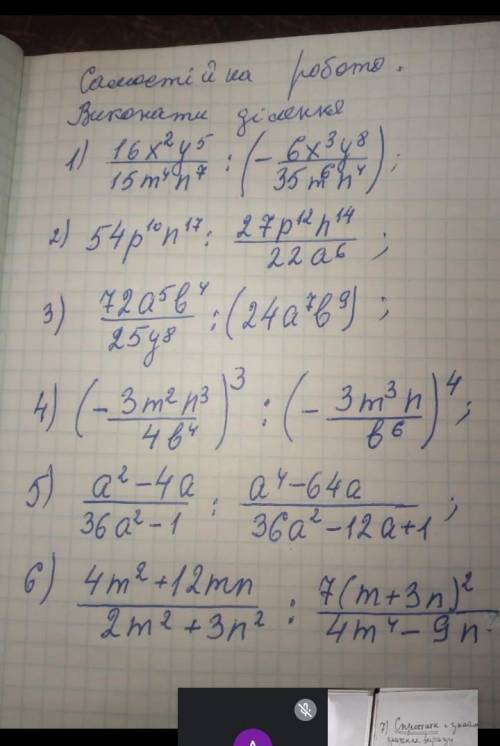 Самостійна робота.
Виконати ділення
1) 16x²y⁵/15m⁴n⁷ : (− 6x³y⁸/35m⁶n⁴);
2) 54p¹⁰n¹⁷ : 27p¹²n¹⁴/22a⁶ ;
3) 72a⁵b⁴/25y⁸ : (24a⁷b⁹) ;
4) (− 3m²n³/4b⁴)³ : (− 3m³n/b⁶)⁴;
5) a²−4a/36a²−1 : a⁴−64a/36a²−12a+1 ;
6) 4m²+12mn/2m²+3n² : 7(m+3n)²/4m⁴−9n
7) Спростити і
A